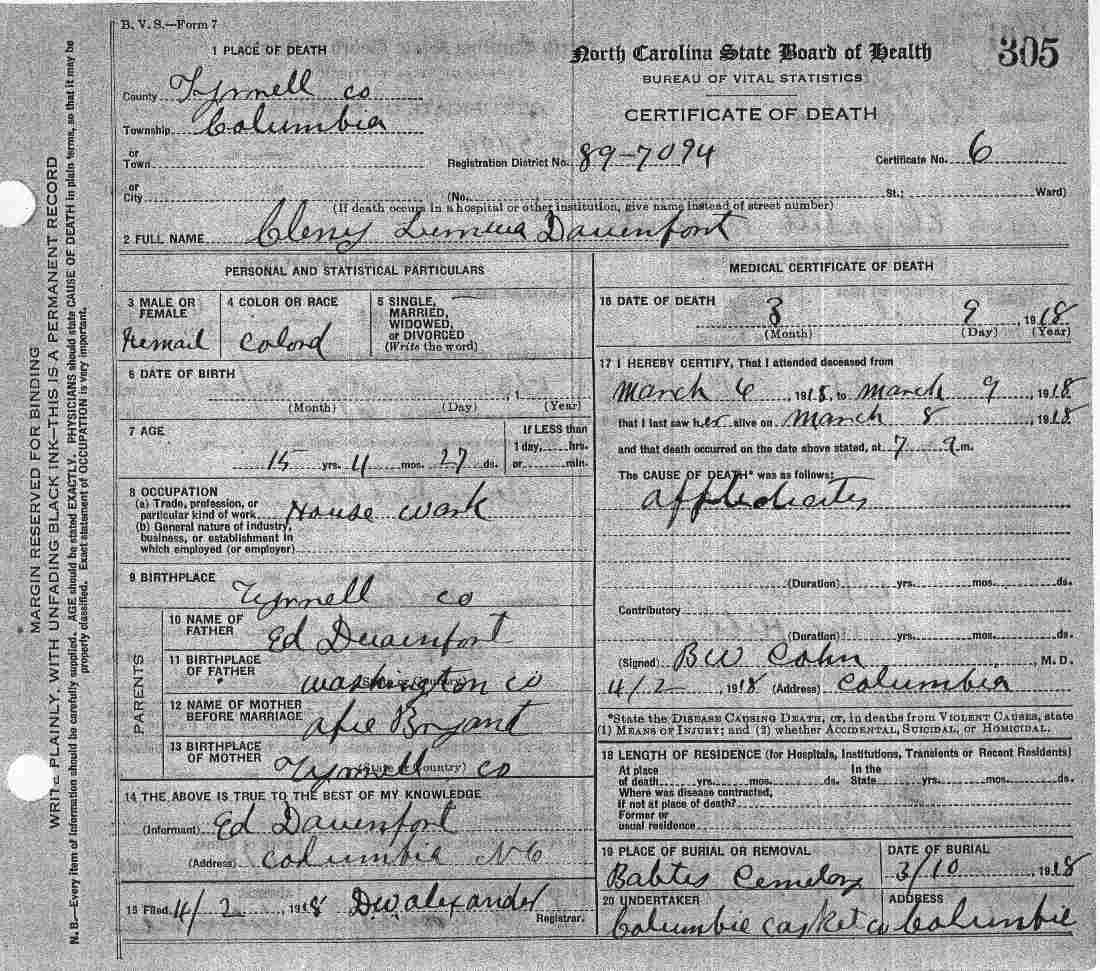 B. V. S.—Form 7
1 PLACE OF DEATH
North Carolina State Board of Health
305
BUREAU OF VITAL STATISTICS
CERTIFICATE OF DEATH
County Tyrrell co
Township Columbia
or Town
Registration District No. 89-7094
Certificate No. 6
or City (No. St.; Ward)
(If death occurs in a hospital or other institution, give name instead of street number)
2 FULL NAME Cleny Davenfort
PERSONAL AND STATISTICAL PARTICULARS
3 MALE OR FEMALE
Femail
4 COLOR OR RACE
Colord
5 SINGLE, MARRIED, WIDOWED, or DIVORCED (Write the word)
6 DATE OF BIRTH
, 1
(Month) (Day) (Year)
7 AGE
If LESS than
1 day, hrs.
or min.
15 yrs. 4 mos. 27 ds.
8 OCCUPATION
(a) Trade, profession, or
particular kind of work House Work
(b) General nature of industry,
business, or establishment in
which employed (or employer)
9 BIRTHPLACE
Tyrrell co
PARENTS
10 NAME OF FATHER
Ed Davenfort
11 BIRTHPLACE OF FATHER
(State or Country)
Washington co
12 NAME OF MOTHER BEFORE MARRIAGE
Afie Bryant
13 BIRTHPLACE OF MOTHER
(State or Country)
Tyrrell co
14 THE ABOVE IS TRUE TO THE BEST OF MY KNOWLEDGE
(Informant) Ed Davenfort
(Address) Columbia NC
15 Filed 4/2, 1918 DW Alexander
Registrar.
MEDICAL CERTIFICATE OF DEATH
16 DATE OF DEATH
3 9, 1918
(Month) (Day) (Year)
17 I HEREBY CERTIFY, That I attended deceased from
March 6 1918, to March 9, 1918
that I last saw her alive on March 8, 1918
and that death occurred on the date above stated, at 7 9 m.
The CAUSE OF DEATH* was as follows:
appledicites
(Duration) yrs. mos. ds.
Contributory
(Duration) yrs. mos. ds.
(Signed) BW Cohn, M. D.
4/2, 1918 (Address) Columbia
*State the DISEASE CAUSING DEATH, or, in deaths from VIOLENT CAUSES, state
(1) MEANS OF INJURY; and (2) whether ACCIDENTAL, SUICIDAL, or HOMICIDAL.
18 LENGTH OF RESIDENCE (for Hospitals, Institutions, Transients or Recent Residents)
At place of death yrs. mos. ds. In the State yrs. mos. ds.
Where was disease contracted,
If not at place of death?
Former or
usual residence
19 PLACE OF BURIAL OR REMOVAL
Babtes Cemelory
DATE OF BURIAL
3/10 1918
20 UNDERTAKER
Columbie casket co
ADDRESS
Columbie
MARGIN RESERVED FOR BINDING
WRITE PLAINLY, WITH UNFADING BLACK INK—THIS IS A PERMANENT RECORD
N. B.—Every item of information should be carefully supplied. AGE should be stated EXACTLY. PHYSICIANS should state CAUSE OF DEATH in plain terms, so that it may be
properly classified. Exact statement of OCCUPATION is very important.